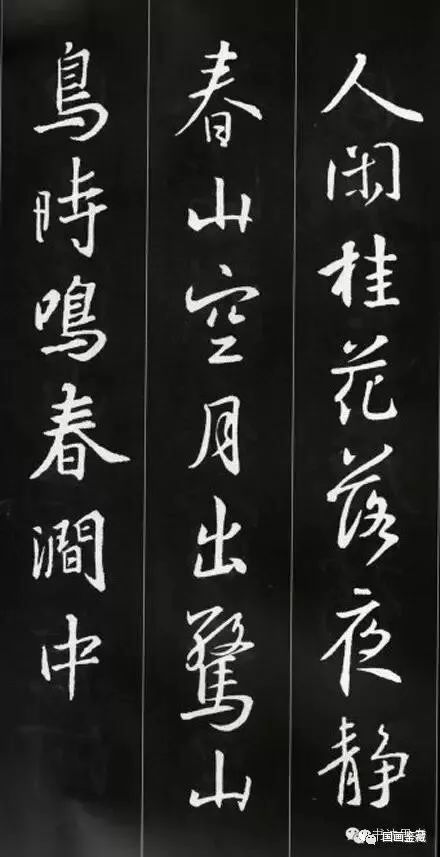 人闲桂花落夜静
春山空月出驚山
鳥時鳴春澗中
国画鉴藏